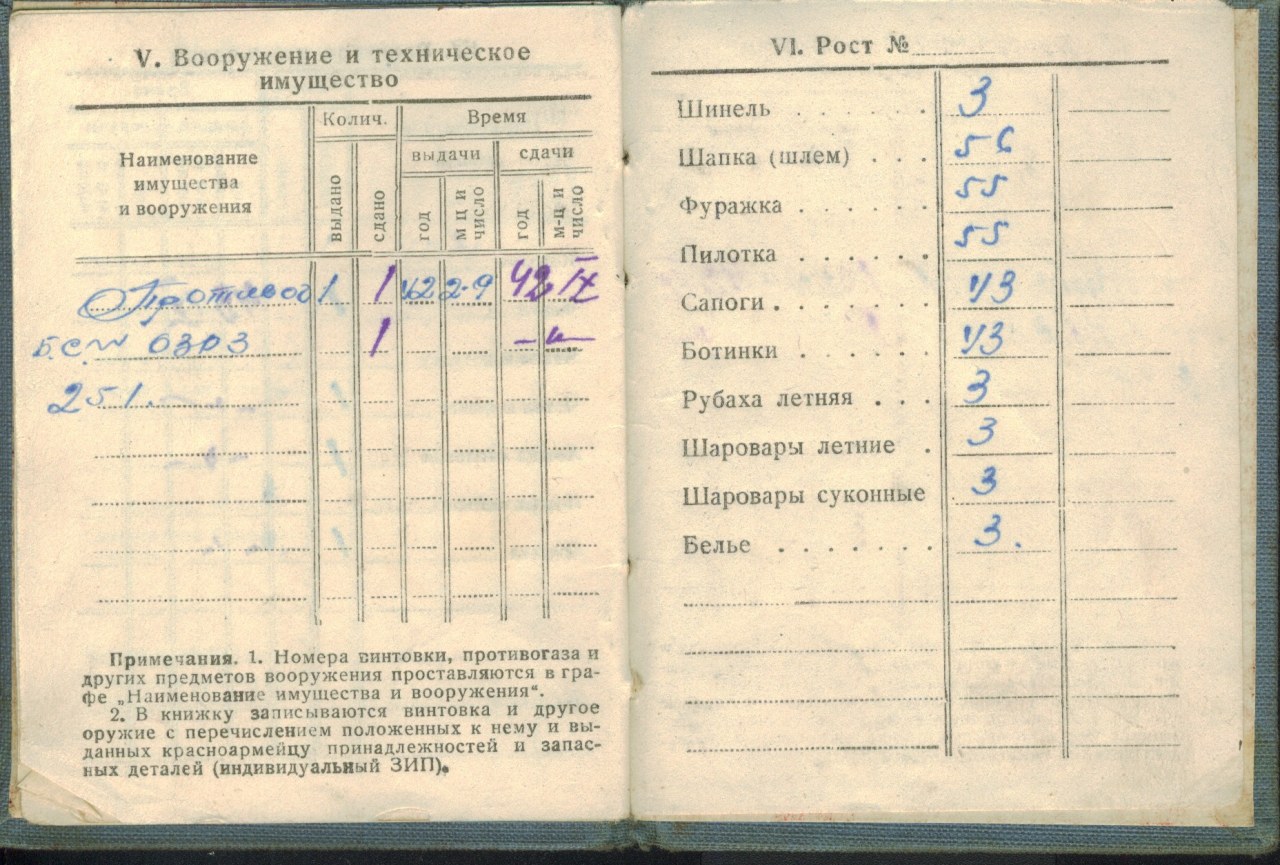 V. Вооружение и техническое
имущество
Наименование
имущества
и вооружения
Колич.
Время
выдачи
сдачи
выдано
сдано
год
м ц и
число
год
м-ц и
число
Противог 1 1 42 2-9 42 IX
Б.С. № 0303 1 -"-
251.
Примечания. 1. Номера винтовки, противогаза и
других предметов вооружения проставляются в гра-
фе „Наименование имущества и вооружения“.
2. В книжку записываются винтовка и другое
оружие с перечислением положенных к нему и вы-
данных красноармейцу принадлежностей и запас-
ных деталей (индивидуальный ЗИП).
VI. Рост №
Шинель . . . . . . 3
Шапка (шлем) . . . 56
Фуражка . . . . . . 55
Пилотка . . . . . . 55
Сапоги . . . . . . . 43
Ботинки . . . . . . 43
Рубаха летняя . . . 3
Шаровары летние . 3
Шаровары суконные 3
Белье . . . . . . . 3.